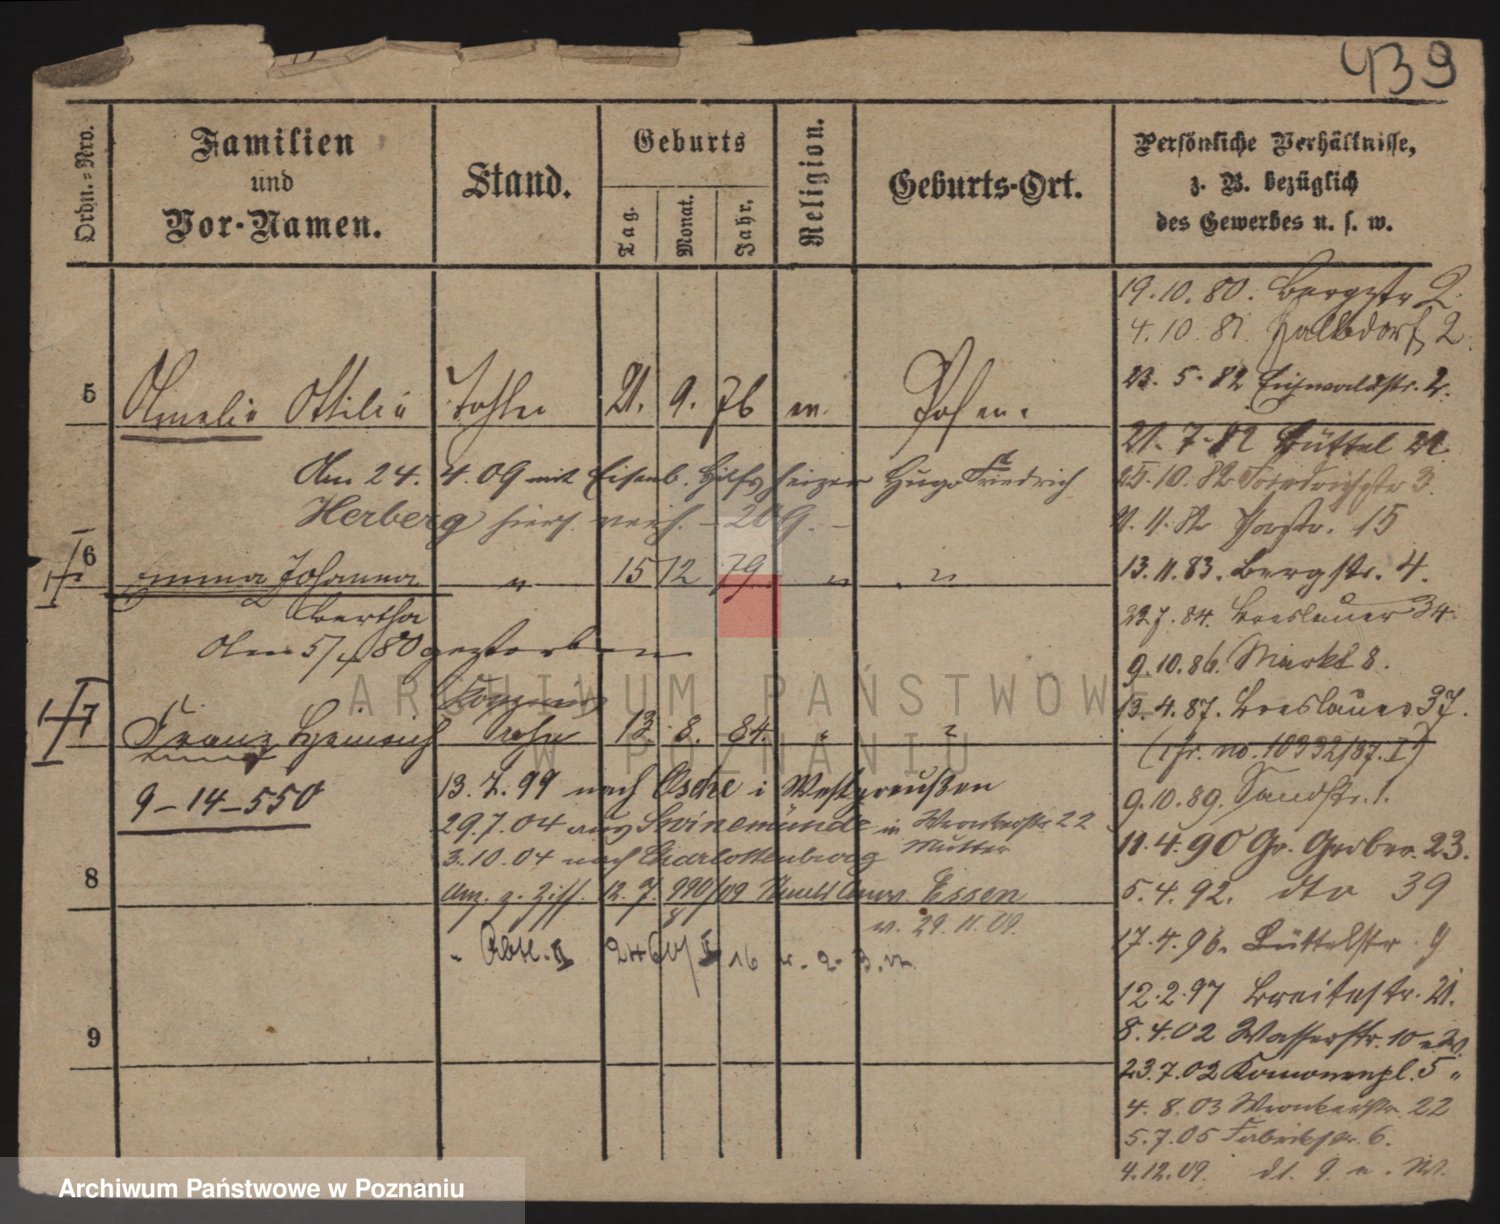 439
Ordn.=Nro.
Familien
und
Vor-Namen.
Stand.
Geburts
Tag.
Monat.
Jahr.
Religion.
Geburts-Ort.
Persönliche Verhältnisse,
z. B. bezüglich
des Gewerbes u. s. w.
5 Amalie Ottilie Tochter 21. 9. 76 ev. Posen.
Am 24. 4. 09 mit Eisenb. Hilfsheizer Hugo Friedrich
Herberg
6 Emma Johanna " 15 12 79 " "
Bertha
Am 5/4 80 gestorben
7 Franz Heinrich Sohn 13. 8. 84. " "
9-14-550
13.7.99 nach Osche i Westpreußen
29.7.04 aus Swinemünde in Wronkerstr. 22
Mutter
3.10.04 nach Charlottenburg
8 12. 7. Essen
v. 29.11.09.
9
19.10.80. Bergstr 2.
4.10.81. Halbdorf 2.
23.5.82 Eichwaldstr. 2.
21.7.82 Büttel 21.
25.10.82 Friedrichstr 3.
21.11.82 15
13.11.83. Bergstr. 4.
22.7.84. Breslauer 34.
9.10.86. Markt 8.
13.4.87. Breslauer 37.
(cfr. no. 10992/87. I)
9.10.89. Sandstr. 1.
11.4.90 Gr. Gerber. 23.
5.4.92. dto 39
17.4.96. Büttelstr. 9
12.2.97 Breitestr. 21.
8.4.02 Wasserstr. 10
23.7.02 5 "
4.8.03 Wronkerstr. 22
5.7.05 Fabrikstr. 6.
4.12.09.
ARCHIWUM PAŃSTWOWE
W POZNANIU
Archiwum Państwowe w Poznaniu